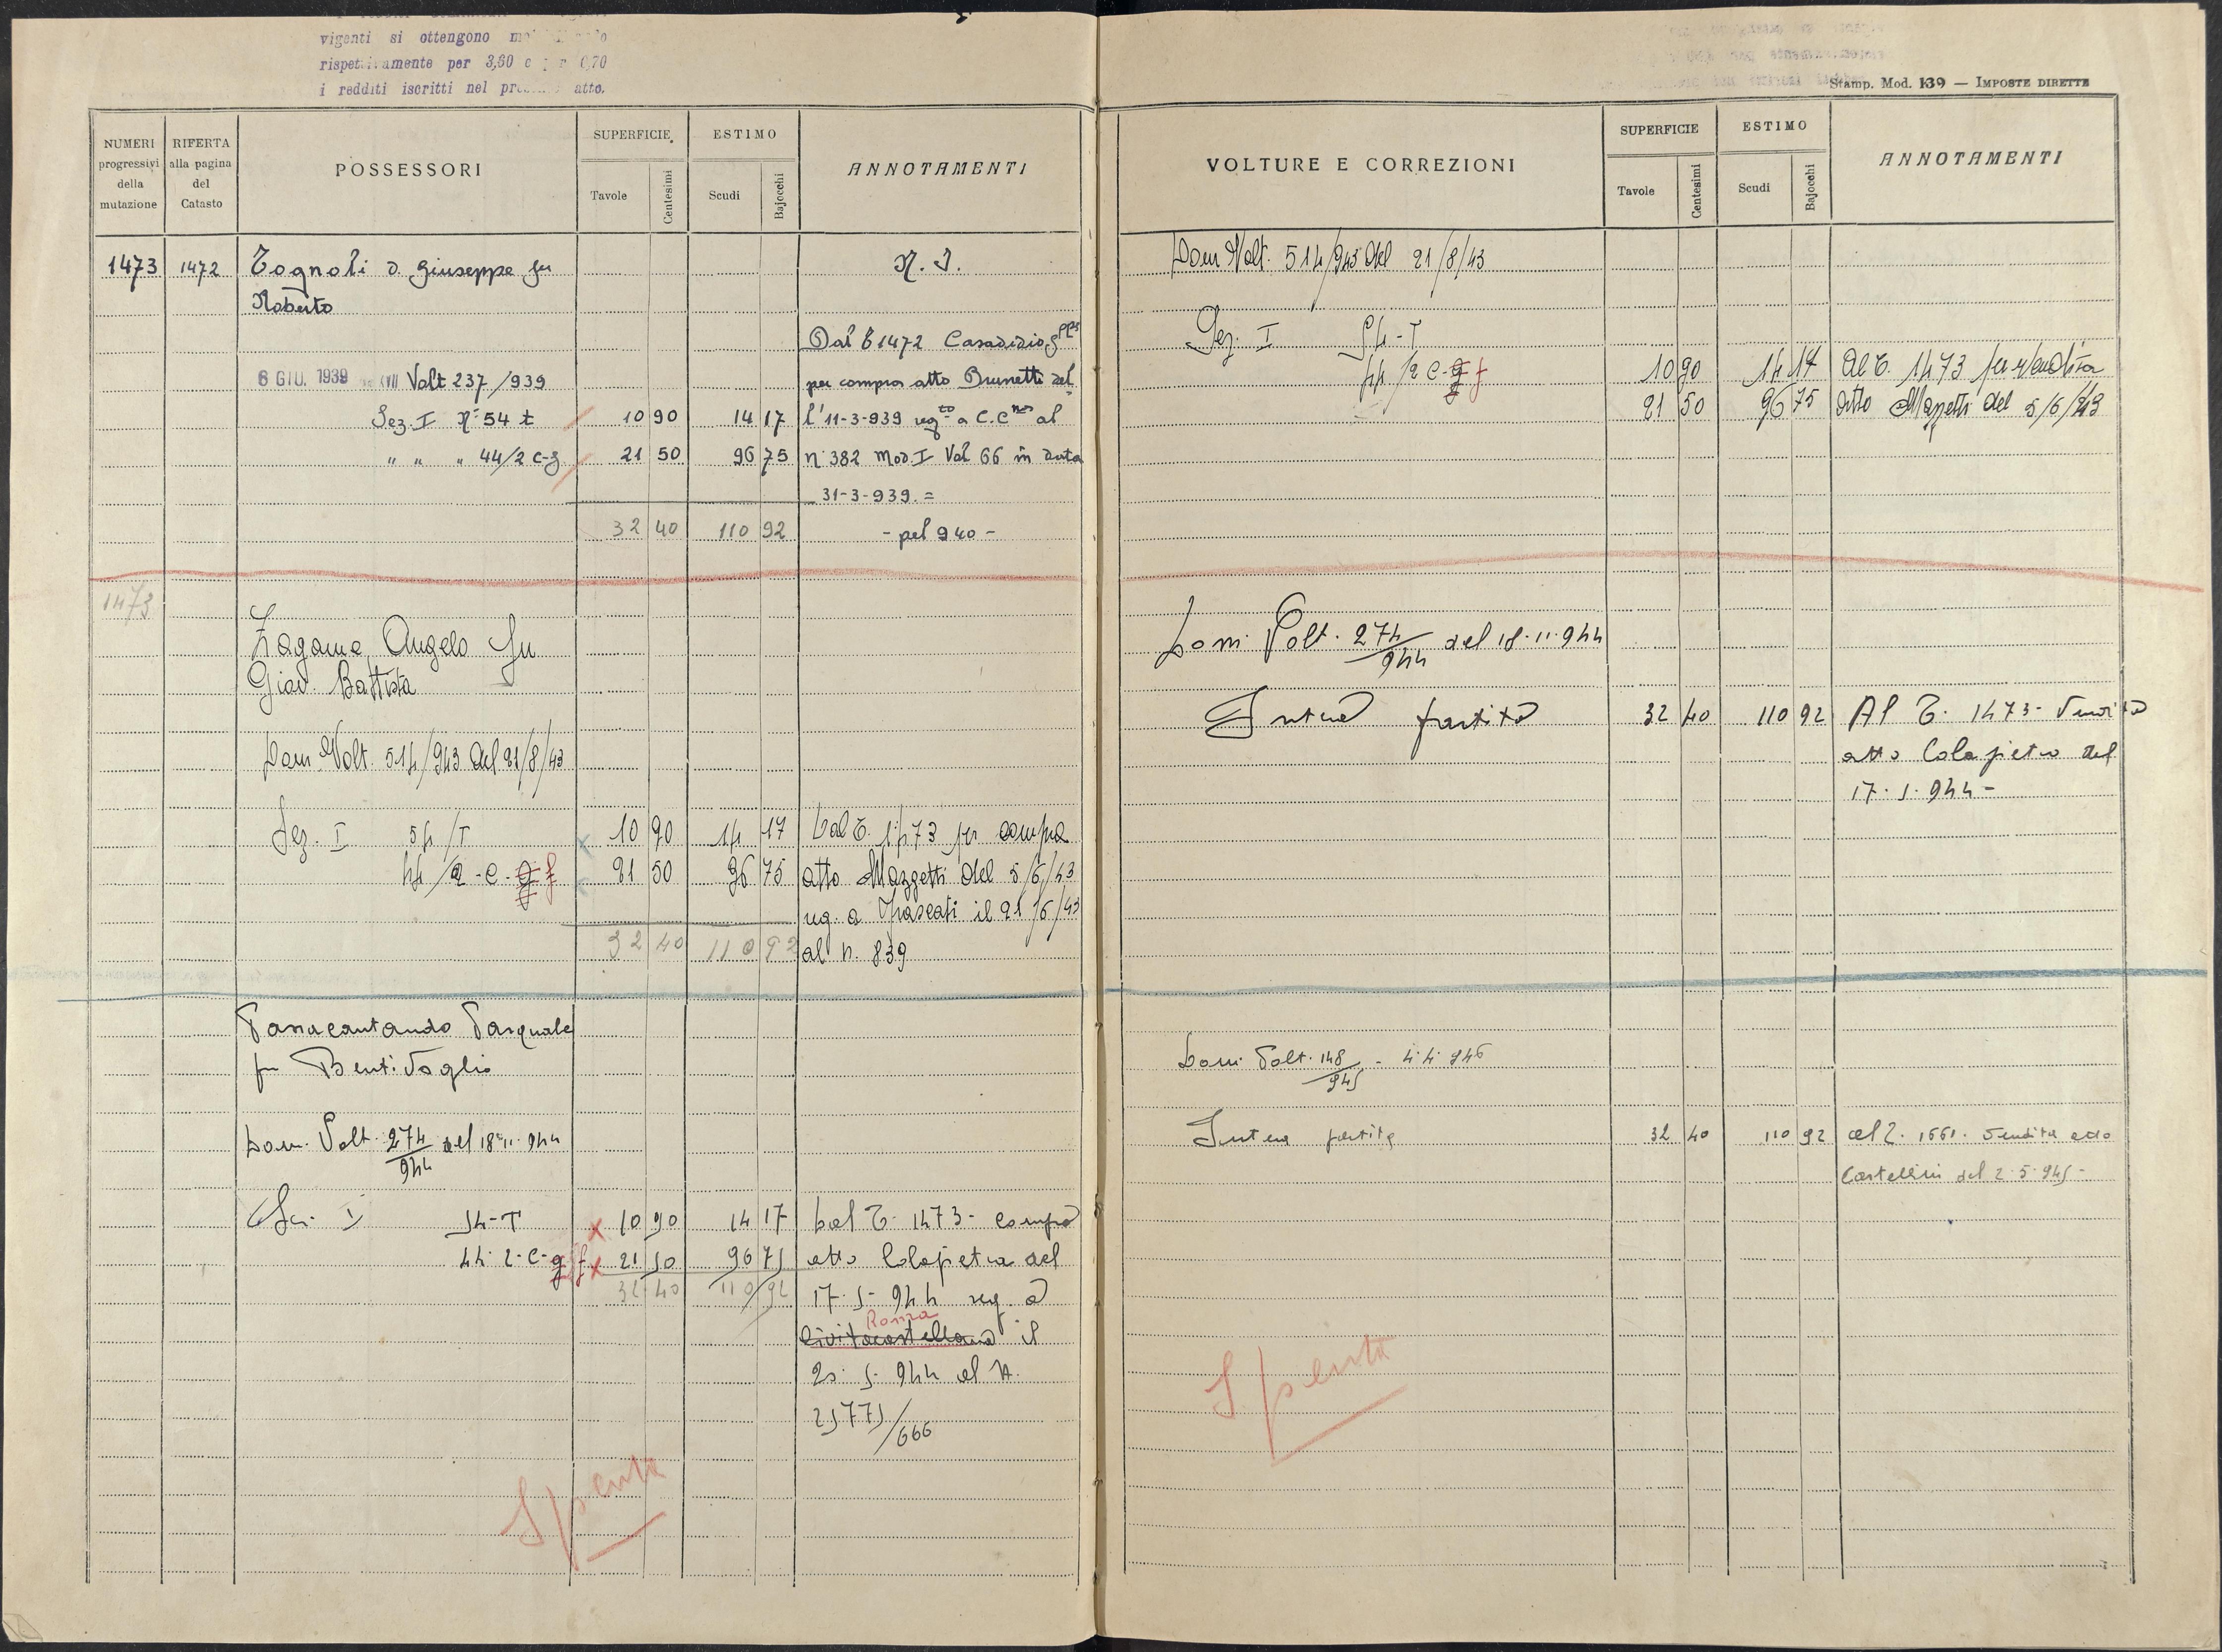 vigenti si ottengono
rispettivamente per 3,60 e per 0,70
i redditi iscritti nel presente atto.
Stamp. Mod. 139 — IMPOSTE DIRETTE
NUMERI progressivi della mutazione
RIFERTA alla pagina del Catasto
POSSESSORI
SUPERFICIE
Tavole Centesimi
ESTIMO
Scudi Bajocchi
ANNOTAMENTI
VOLTURE E CORREZIONI
SUPERFICIE
Tavole Centesimi
ESTIMO
Scudi Bajocchi
ANNOTAMENTI
1473 1472 Tognoli D. Giuseppe fu N. I.
Roberto
Dal T 1472 Casadidio
6 GIU. 1939 XVII Volt 237/939 per compra atto Brunetti del
Sez. I N° 54 t 10 90 14 17 l'11-3-939 regto a C.C al
" " " 44/2 c-g 21 50 96 75 n° 382 Mod. I Vol 66 in data
31-3-939. =
32 40 110 92 - pel 940 -
1473
Zagame Angelo fu
Giov. Battista
Dom Volt. 514/943 del 21/8/43
Sez. I 54/T 10 90 14 17 Dal T. 1473 per compra
44/2-c-g f 21 50 96 75 atto Mazzetti del 5/6/43
reg. a Frascati il 21/6/43
32 40 110 92 al n. 839
Passacantando Pasquale
fu Bentivoglio
Dom. Volt. 274/944 del 18-11-944
Sez. I 54-T 10 90 14 17 Dal T. 1473- compra
44-2-c-g f 21 50 96 75 atto Colapietro del
32 40 110 92 17-5-944 reg. a
Roma
Civitacastellana il
25-5-944 al N.
25775/666
Spenta
Dom Volt. 514/943 del 21/8/43
Sez. I 54-T
44/2 c-g f 10 90 14 17 Al T. 1473 per vendita
21 50 96 75 atto Mazzetti del 5/6/43
Dom. Volt. 274/944 del 18-11-944
Intera partita 32 40 110 92 Al T. 1473- Vendita
atto Colapietro del
17-5-944-
Dom. Volt. 148/945 - 4-4-946
Intera partita 32 40 110 92 al T. 1661. Vendita atto
Castellini del 2-5-945-
Spenta